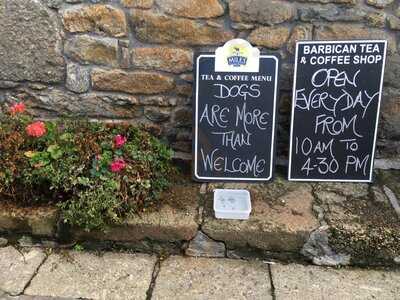 MILES
TEA & COFFEE MENU
DOGS
ARE MORE
THAN
WELCOME
BARBICAN TEA
& COFFEE SHOP
OPEN
EVERYDAY
FROM
10AM TO
4-30 PM